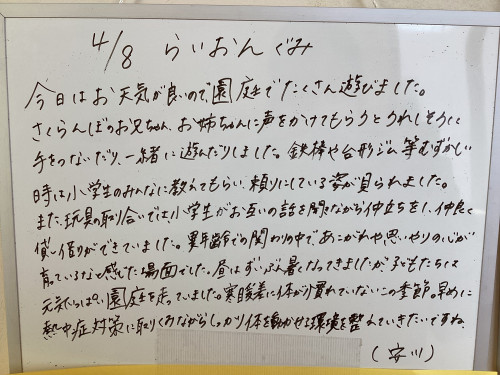 4/8 らいおんぐみ
今日はお天気が良いので園庭でたくさん遊びました。
さくらんぼのお兄ちゃん、お姉ちゃんに声をかけてもらうとうれしそうに
手をつないだり、一緒に遊んだりしました。鉄棒や台形ジム等むずかしい
時は小学生のみんなに教えてもらい、頼りにしている姿が見られました。
また、玩具の取り合いでは小学生がお互いの話を聞きながら仲立ちをし、仲良く
貸し借りができていました。異年齢での関わりの中で、あこがれや思いやりの心が
育っているなと感じた場面でした。昼はずいぶん暑くなってきましたが子どもたちは
元気いっぱい園庭を走っていました。寒暖差に体が慣れていないこの季節。早めに
熱中症対策に取りくみながらしっかり体を動かせる環境を整えていきたいですね。
(安川)